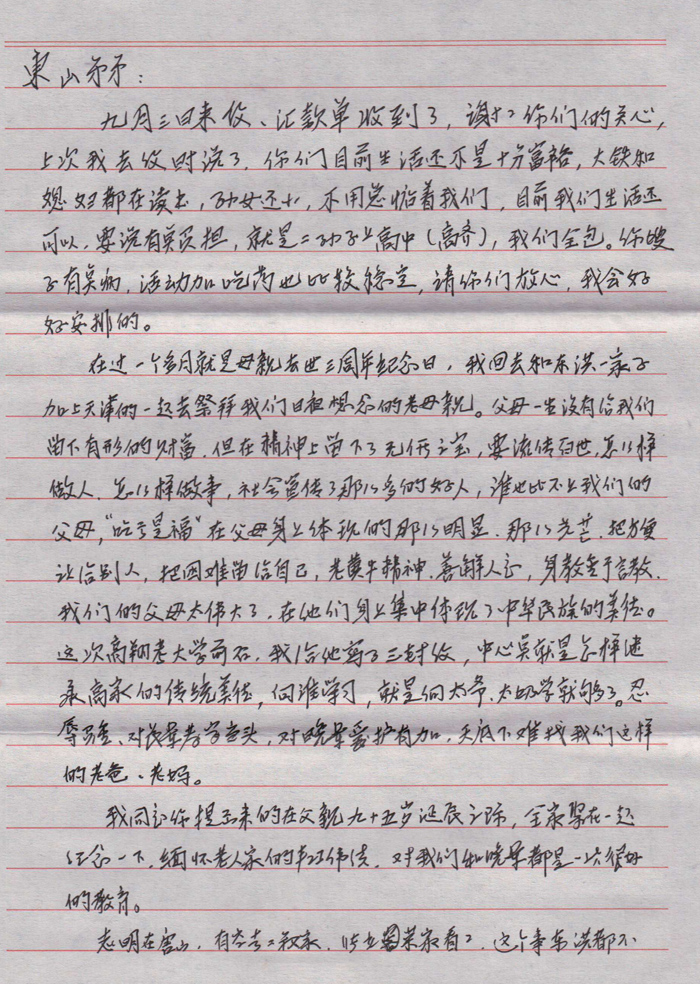 東山弟弟：
九月三日来信、汇款单收到了，谢谢你们的关心，
上次我去信时说了，你们目前生活还不是十分富裕，大铁和
媳妇都在读书，孙女还小，不用总惦着我们，目前我们生活还
可以，要说有点负担，就是二孙子上高中（高齐），我们全包。你嫂
子有点病，活动加吃药也比较稳定，请你们放心，我会好
好安排的。
在过一个多月就是母亲去世三周年纪念日，我回去和东洪一家子
加上天津的一起去祭拜我们日夜想念的老母亲。父母一生没有给我们
留下有形的财富，但在精神上留下了无价之宝，要流传百世，怎么样
做人，怎么样做事，社会宣传了那么多的好人，谁也比不上我们的
父母，“吃亏是福”在父母身上体现的那么明显，那么光芒，把方便
让给别人，把困难留给自己，老黄牛精神，善解人意，身教重于言教，
我们的父母太伟大了，在他们身上集中体现了中华民族的美德。
这次高翔考大学前后，我给他写了三封信，中心点就是怎样继
承高家的传统美德，向谁学习，就是向太爷、太奶学就够了。忍
辱负重、对长辈孝字当头，对晚辈爱护有加，天底下难找我们这样
的老爸、老妈。
我同意你提出来的在父亲九十五岁诞辰之际，全家聚在一起
纪念一下，缅怀老人家的丰功伟绩，对我们和晚辈都是一次很好
的教育。
志明在唐山，有空去二叔家，看了，这个事东洪都不